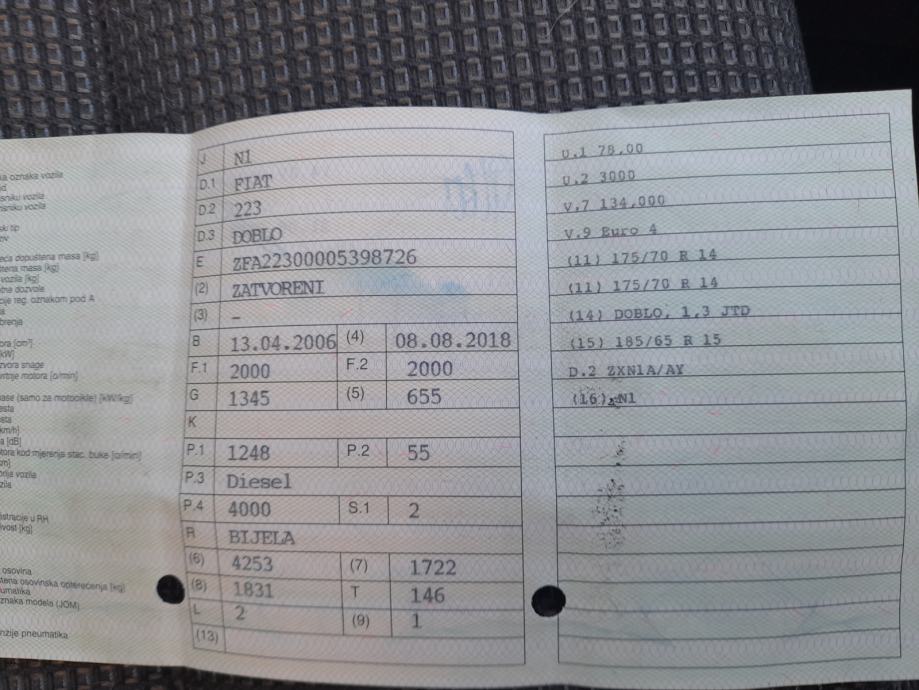 a oznaka vozila
sniku vozila
sniku vozila
ski tip
eća dopuštena masa [kg]
štena masa [kg]
vozila [kg]
tne dozvole
cije reg. oznakom pod A
ora [cm³]
kW]
zvora snage
vrtnje motora [o/min]
ase (samo za motocikle) [kW/kg]
esta
esta
km/h]
a [dB]
tora kod mjerenja stac. buke [o/min]
km]
rija vozila
zila
istracije u RH
ivost [kg]
osovina
tena osovinska opterećenja [kg]
umatika
znaka modela (JOM)
nzije pneumatika
J N1
D.1 FIAT
D.2 223
D.3 DOBLO
E ZFA22300005398726
(2) ZATVORENI
(3) –
B 13.04.2006 (4) 08.08.2018
F.1 2000 F.2 2000
G 1345 (5) 655
K
P.1 1248 P.2 55
P.3 Diesel
P.4 4000 S.1 2
R BIJELA
(6) 4253 (7) 1722
(8) 1831 T 146
L 2 (9) 1
(13)
U.1 78,00
U.2 3000
V.7 134,000
V.9 Euro 4
(11) 175/70 R 14
(11) 175/70 R 14
(14) DOBLO, 1,3 JTD
(15) 185/65 R 15
D.2 ZXN1A/AY
(16) N1